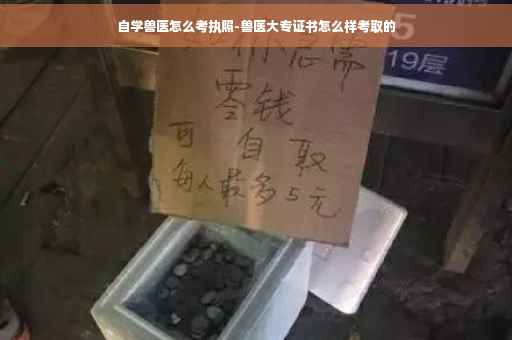 自学兽医怎么考执照-兽医大专证书怎么样考取的
你急需
零钱
可自取
每人最多5元
5
19层